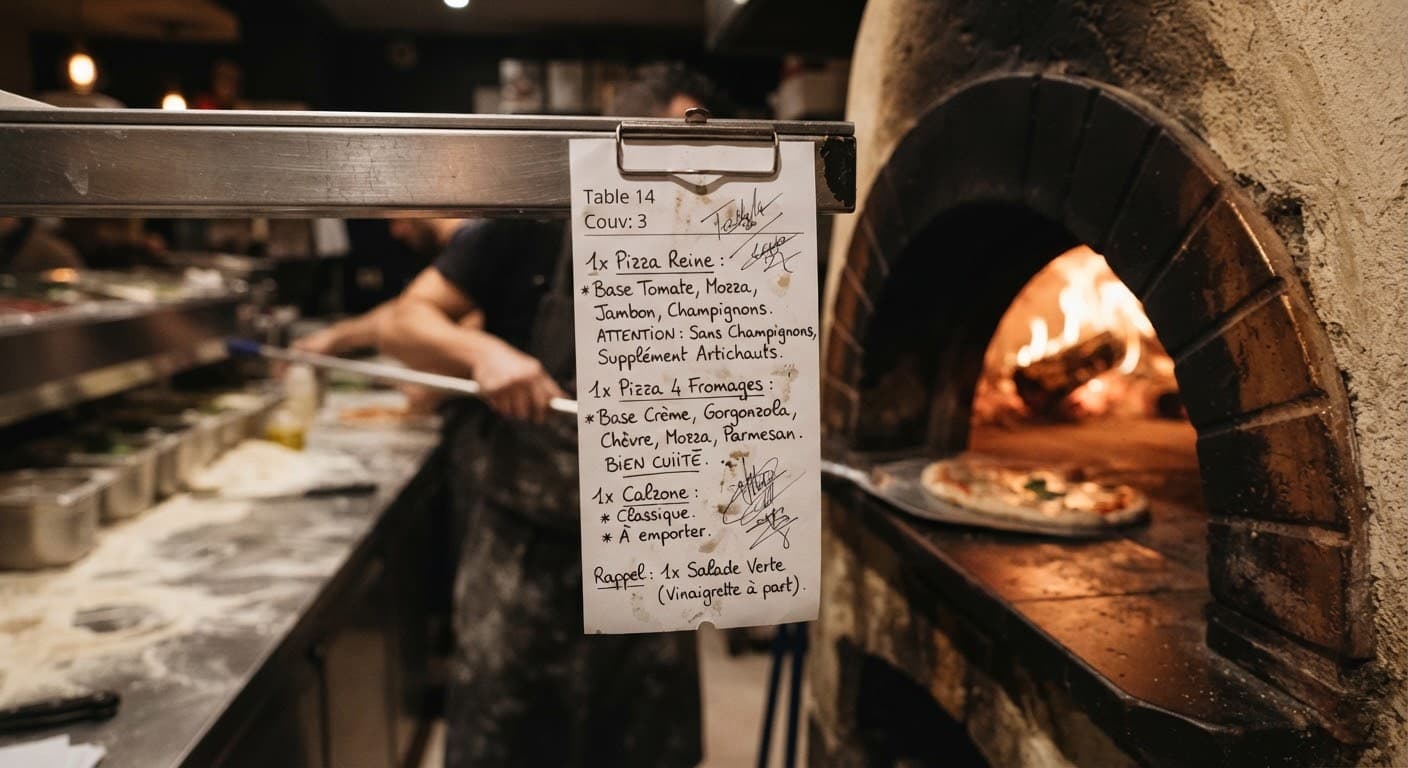 Table 14
Couv: 3
1x Pizza Reine :
* Base Tomate, Mozza,
Jambon, Champignons.
ATTENTION : Sans Champignons,
Supplément Artichauts.
1x Pizza 4 Fromages :
* Base Crème, Gorgonzola,
Chèvre, Mozza, Parmesan.
BIEN CUIITÉ.
1x Calzone :
* Classique.
* À emporter.
Rappel : 1x Salade Verte
(Vinaigrette à part).